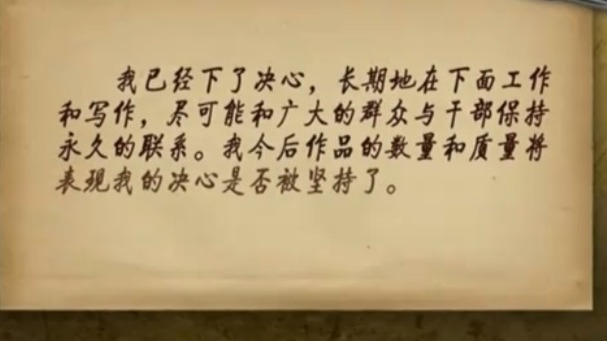 我已经下了决心，长期地在下面工作
和写作，尽可能和广大的群众与干部保持
永久的联系。我今后作品的数量和质量将
表现我的决心是否被坚持了。